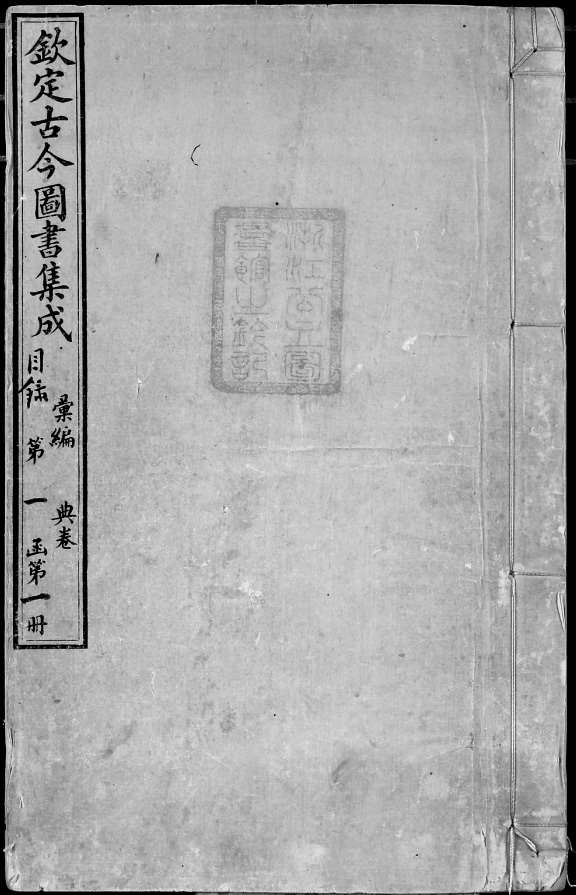 欽定古今圖書集成
彙編 典卷
目錄 第一函第一冊
浙江公立圖
書館之鈐記